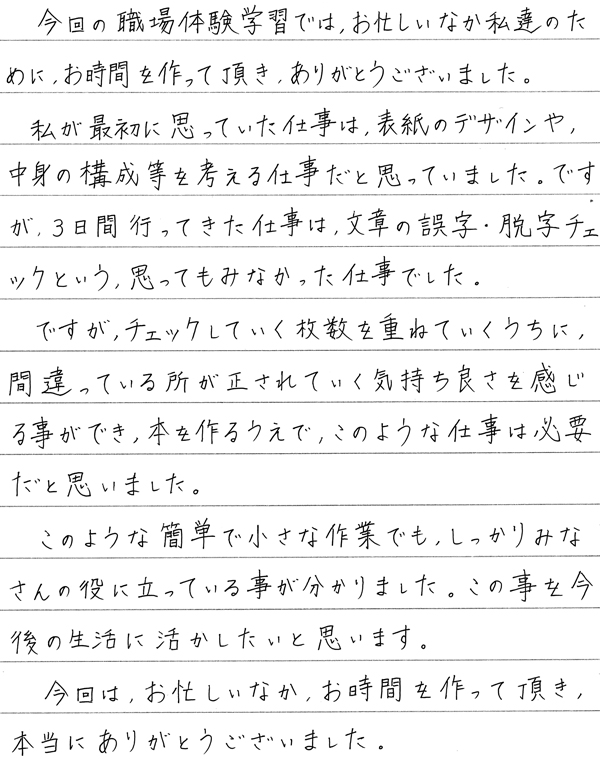 今回の職場体験学習では,お忙しいなか私達のた
めに,お時間を作って頂き,ありがとうございました。
私が最初に思っていた仕事は,表紙のデザインや,
中身の構成等を考える仕事だと思っていました。です
が,3日間行ってきた仕事は,文章の誤字・脱字チェ
ックという,思ってもみなかった仕事でした。
ですが,チェックしていく枚数を重ねていくうちに,
間違っている所が正されていく気持ち良さを感じ
る事ができ,本を作るうえで,このような仕事は必要
だと思いました。
このような簡単で小さな作業でも,しっかりみな
さんの役に立っている事が分かりました。この事を今
後の生活に活かしたいと思います。
今回は,お忙しいなか,お時間を作って頂き,
本当にありがとうございました。